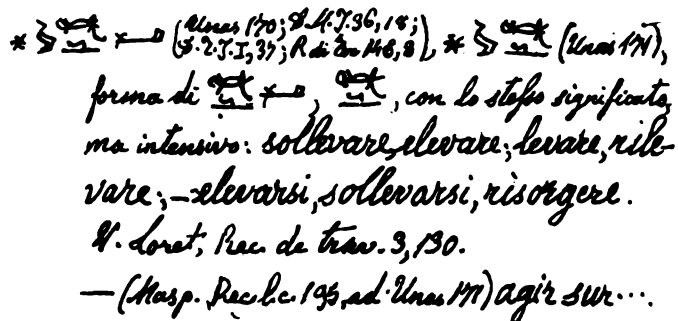 * (Unas 170; S.H.T.36,18; S.2.T.I,37; R di Zoo 148,8), * (Unas 171),
forma di , , con lo stesso significato,
ma intensivo: sollevare, elevare; levare, rile-
vare; – elevarsi, sollevarsi, risorgere.
V. Loret, Rec. de trav. 3,130.
— (Masp. Rec. l.c. 195, ad Unas 171) agir sur....